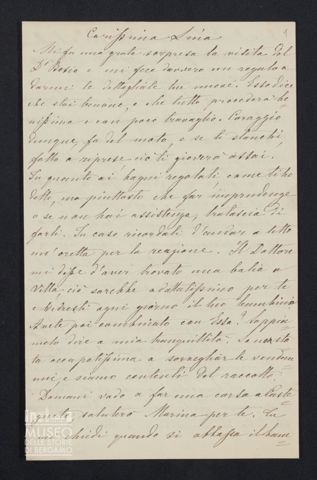 Carissima Lucia
1
Mi fu una grata sorpresa la visita del
Dr Rosco e mi fece davvero un regalo a
darmi le dettagliate tue nuove. Esso dice
che stai benone, e che tutto procederà be-
nissimo e con poco travaglio. Coraggio
dunque, fa del moto, e se ti stanchi,
fallo a riprese ciò ti gioverà assai.
In quanto ai bagni regolati come ti ho
detto, ma piuttosto che far imprudenze
o se non hai assistenza, tralascia di
farli. In caso ricordati d'andar a letto
un'oretta per la reazione. Il Dottore
mi disse d'aver trovato una balia a
Villa, ciò sarebbe adattatissimo per te
e vedresti ogni giorno il tuo bambino
Avete poi combinato con Essa?
dire a mia tranquillità. Io sono sta-
ta occupatissima a sorvegliar le vendem
mie, e siamo contenti del raccolto.
Domani vado a far una corsa a
saluterò Marina per te.
chiudi quando si abbassa il
MUSEO
DELLE STORIE
DI BERGAMO